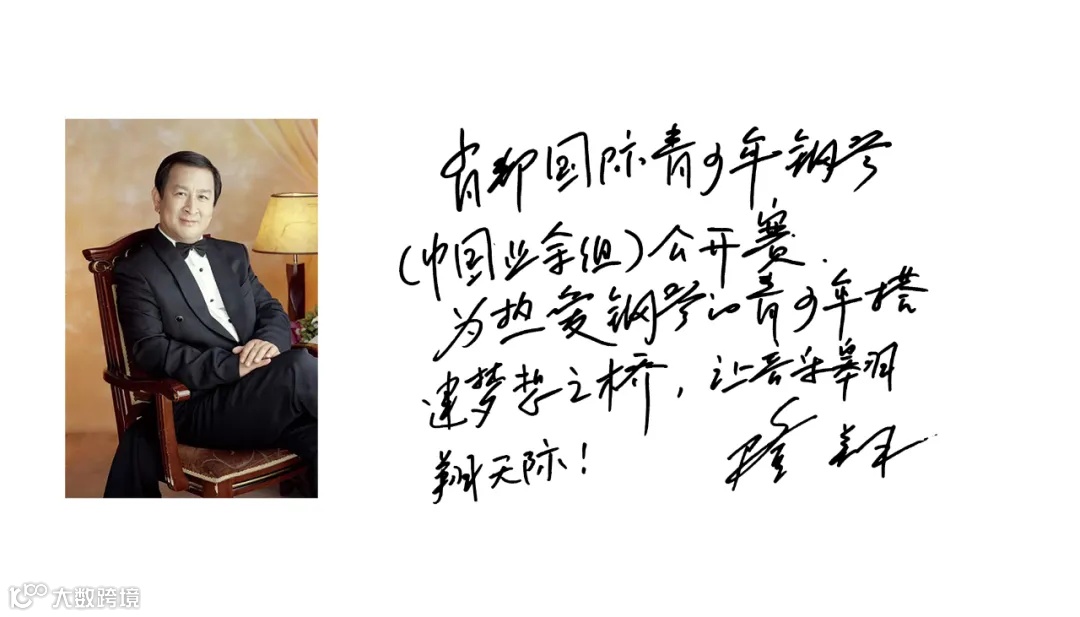 首都国际青少年钢琴
(中国业余组)公开赛.
为热爱钢琴的青少年搭
建梦想之桥,让音乐翱
翔天际!
大数跨境